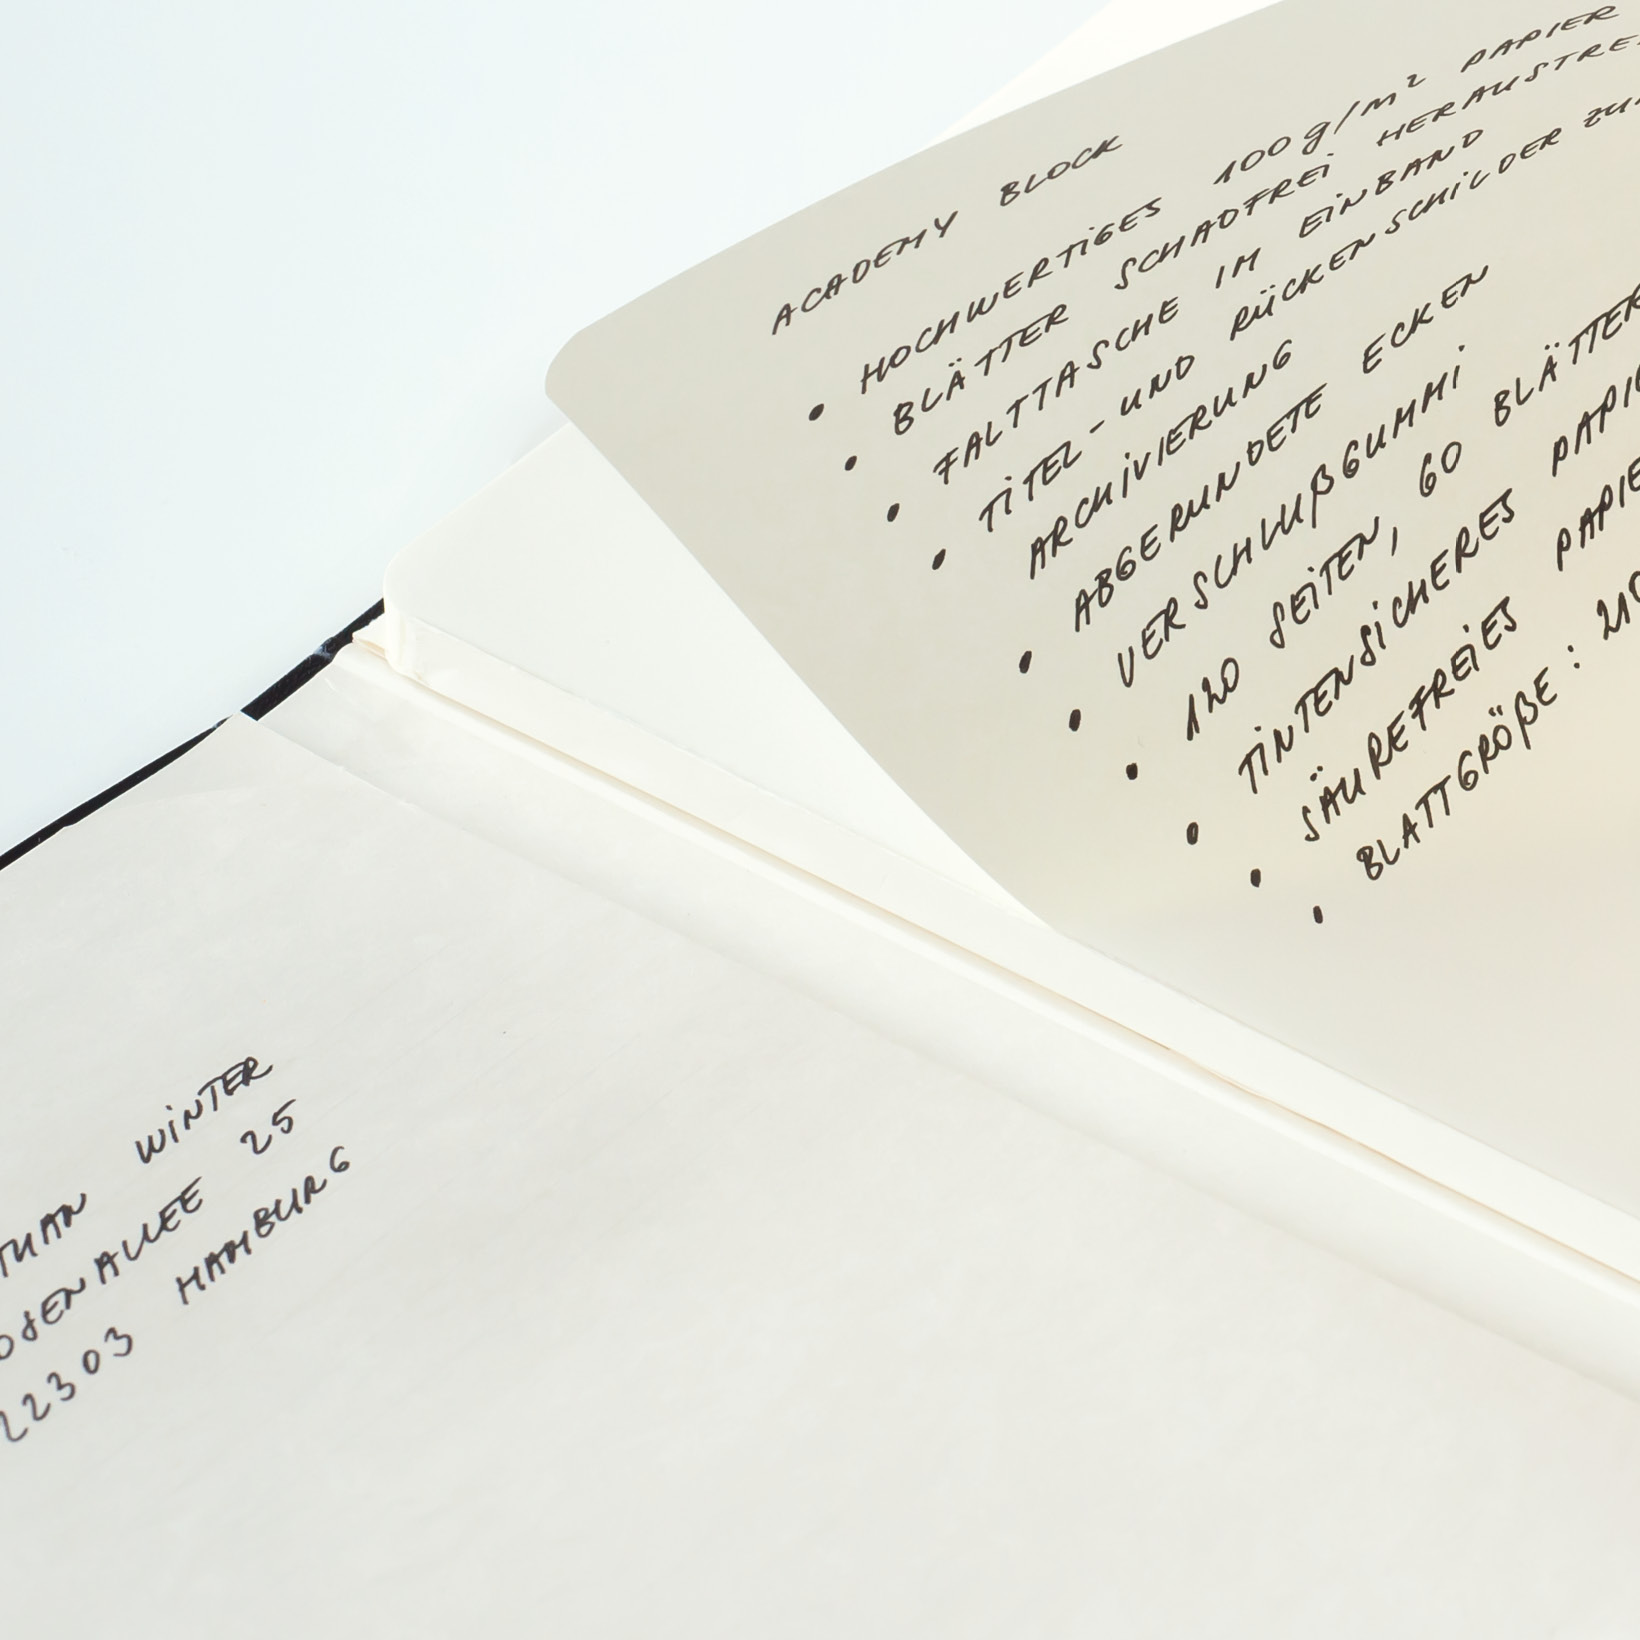 ACADEMY BLOCK
• HOCHWERTIGES 100g/m² PAPIER
• BLÄTTER SCHADFREI HERAUSTRE
• FALTTASCHE IM EINBAND
• TITEL-UND RÜCKENSCHILDER ZU
ARCHIVIERUNG
• ABGERUNDETE ECKEN
• VERSCHLUßGUMMI
• 120 SEITEN, 60 BLÄTTER
• TINTENSICHERES PAPI
• SÄUREFREIES PAPIE
• BLATTGRÖßE: 210
THAN WINTER
OSENALLEE 25
22303 HAMBURG